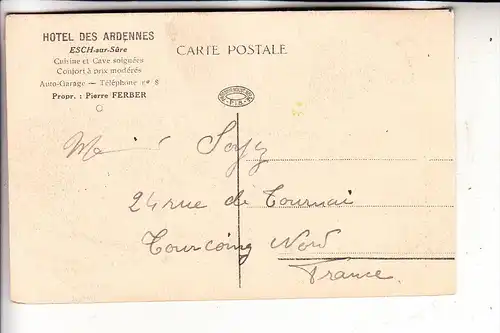 HOTEL DES ARDENNES
ESCH-sur-Sûre
Cuisine et Cave soignées
Confort à prix modérés
Auto-Garage — Téléphone nº 8
Propr. : Pierre FERBER
CARTE POSTALE
24 rue de Tournai
Tourcoing Nord
France